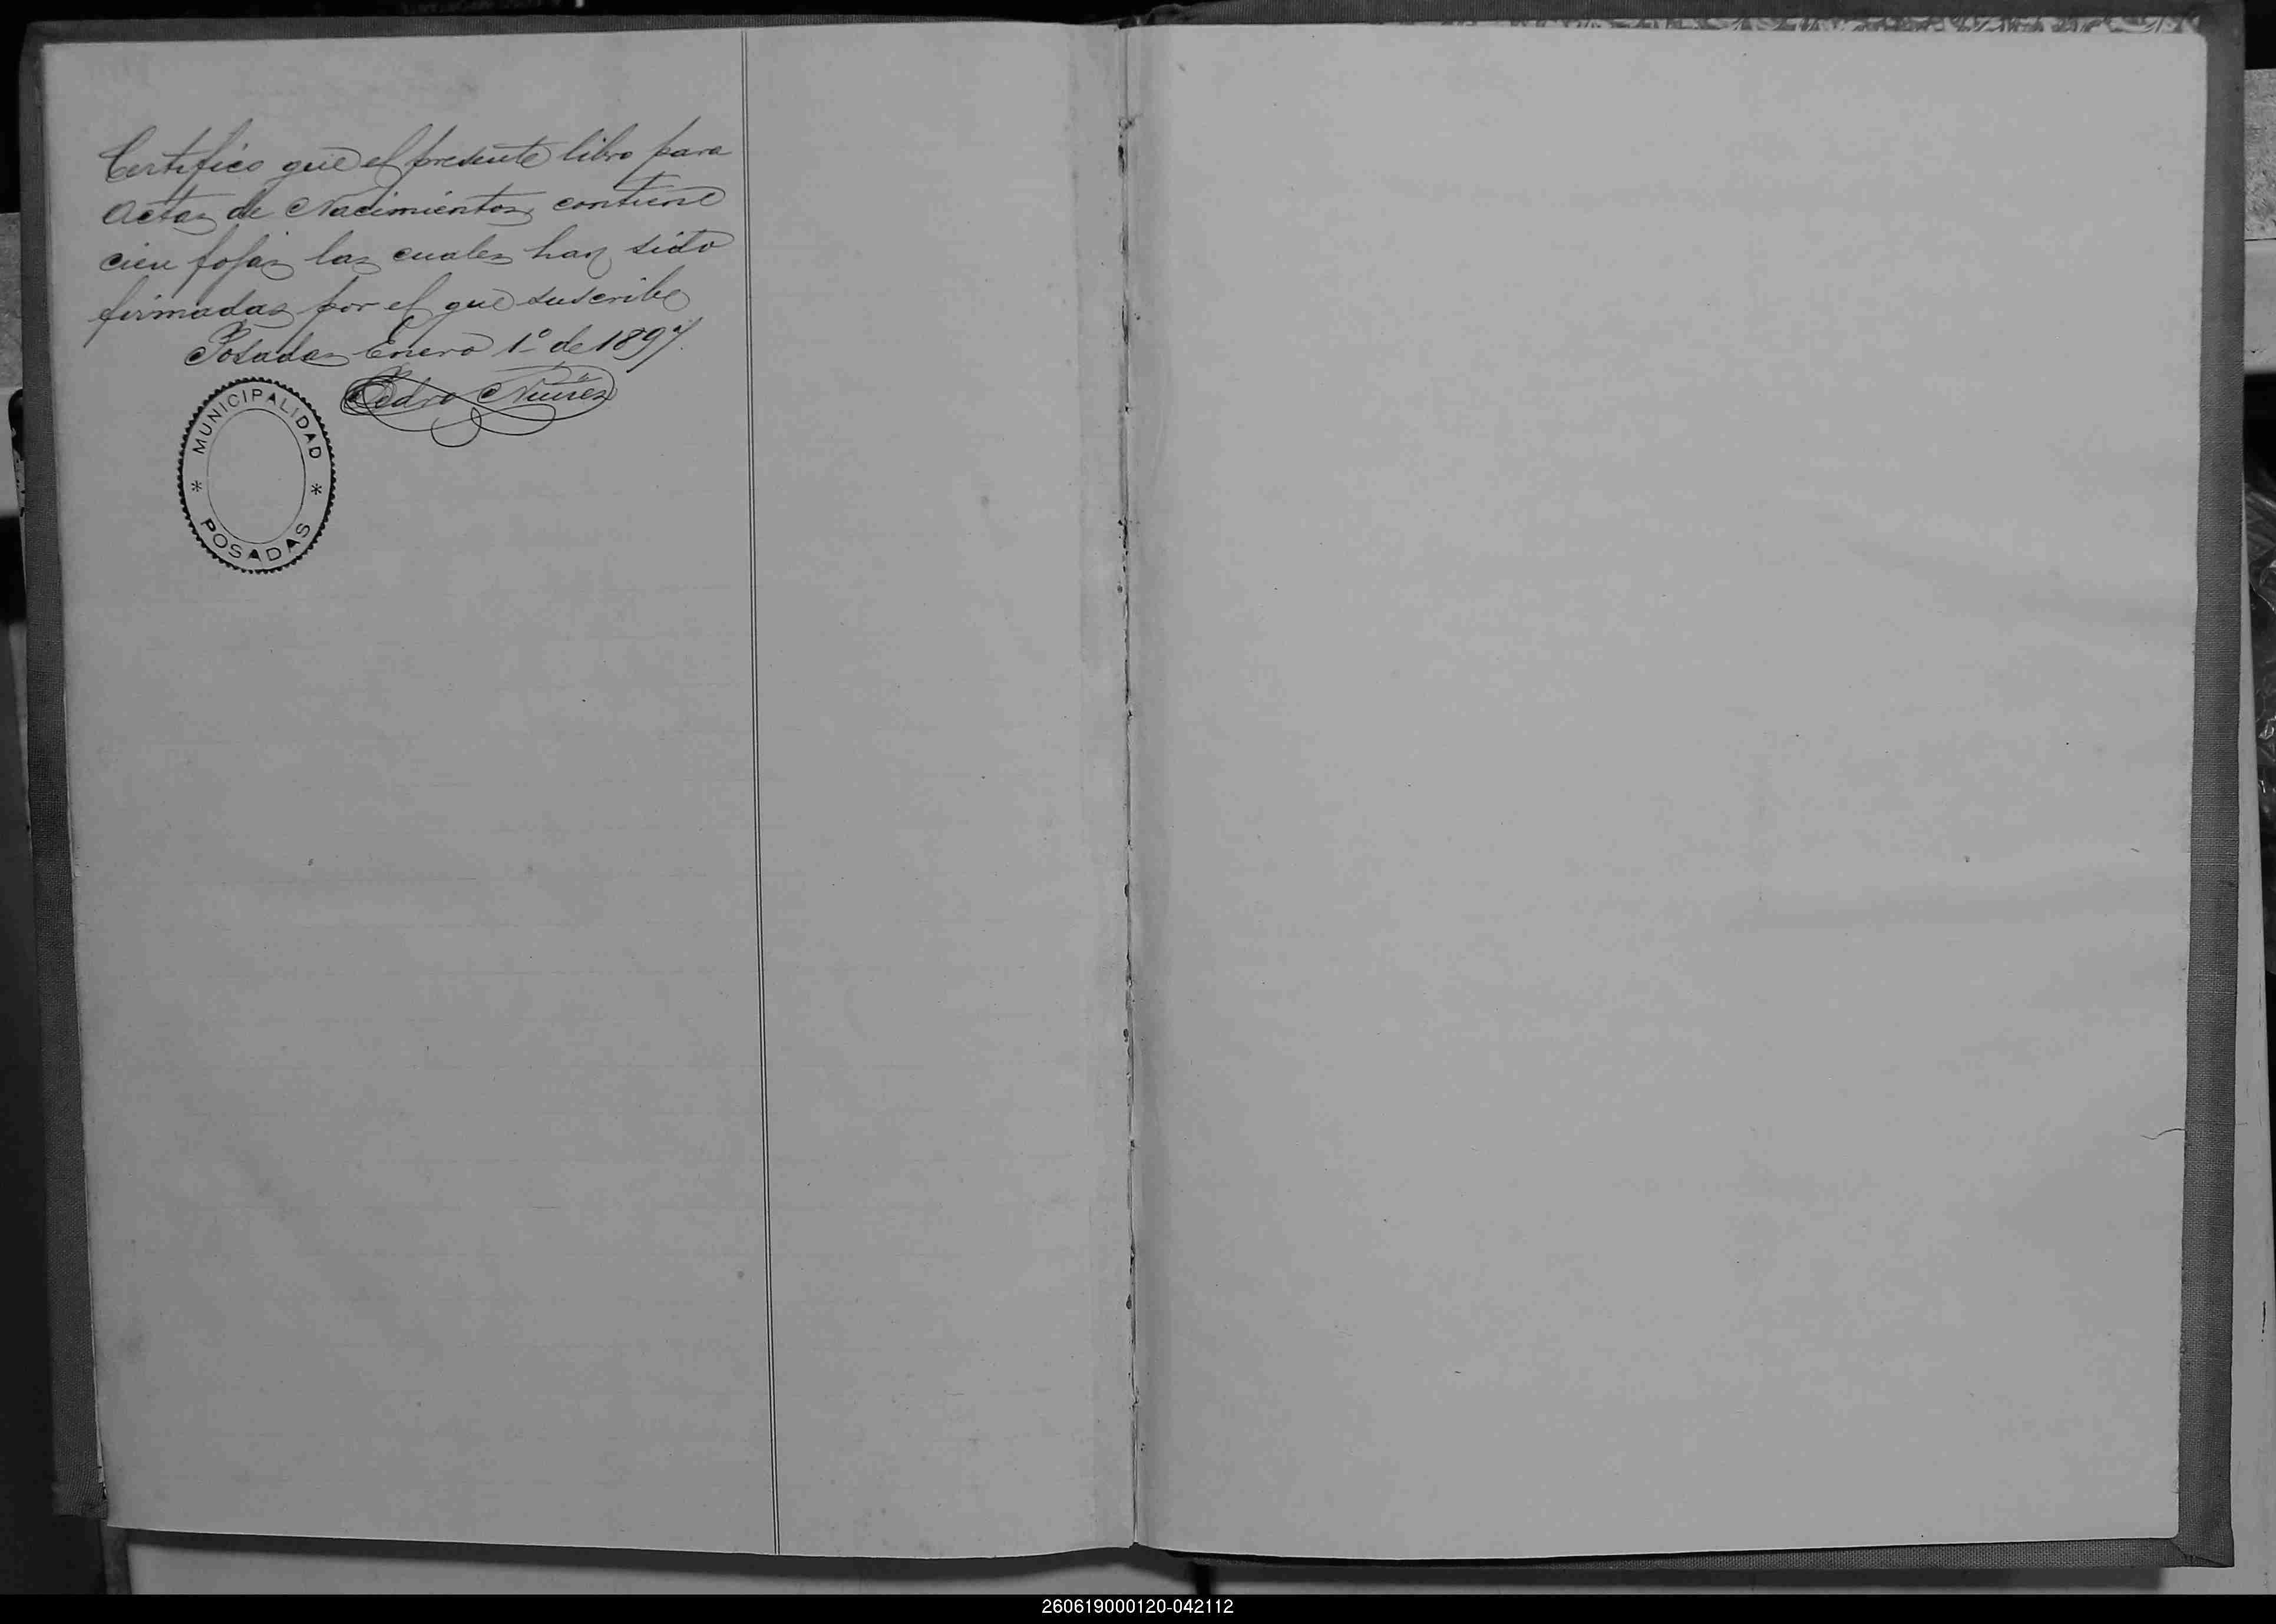 Certifico que el presente libro para
Actas de Nacimientos contiene
cien fojas las cuales han sido
firmadas por el que suscribe
Posadas Enero 1º de 1897.
Pedro Nuñez
MUNICIPALIDAD
* *
POSADAS
260619000120-042112